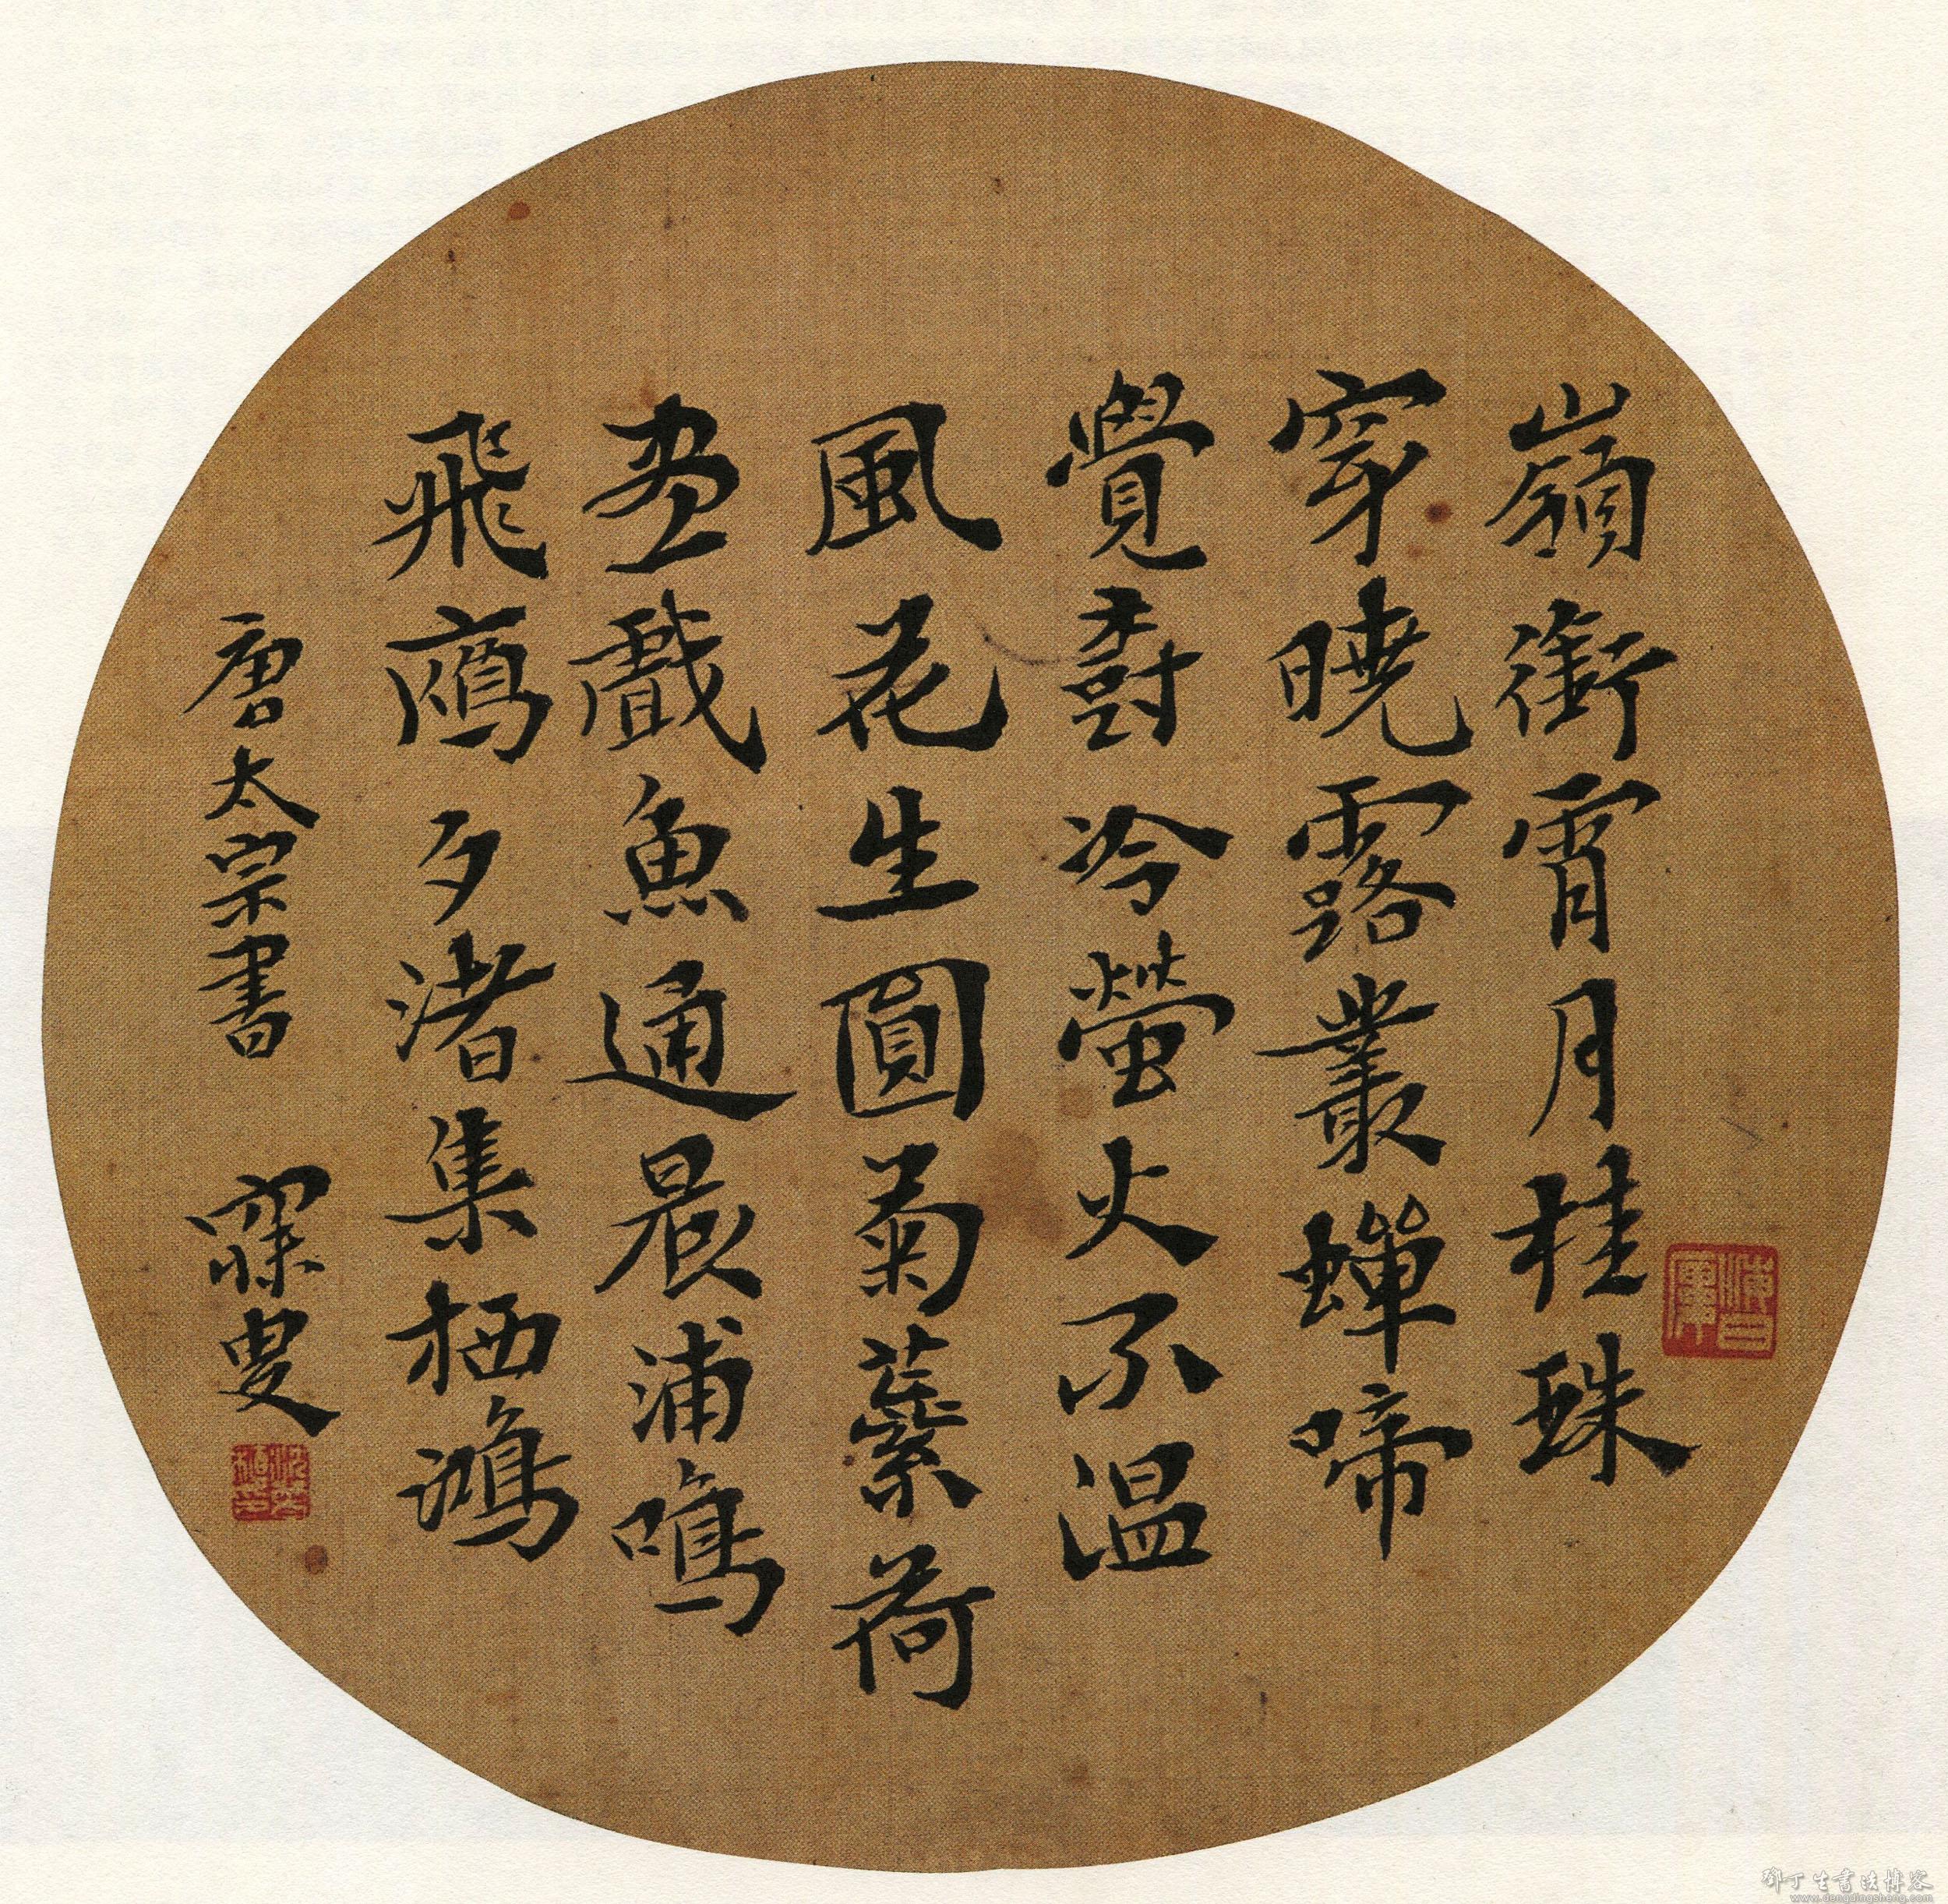 嶺銜霄月桂珠
穿曉露叢蟬啼
覺尌冷螢火不溫
風花生圓菊蘂荷
盡戲魚通晨浦鳴
飛鴈夕渚集栖鴻
唐太宗書 寐叟
海日廔
www.dengdingsheng.com